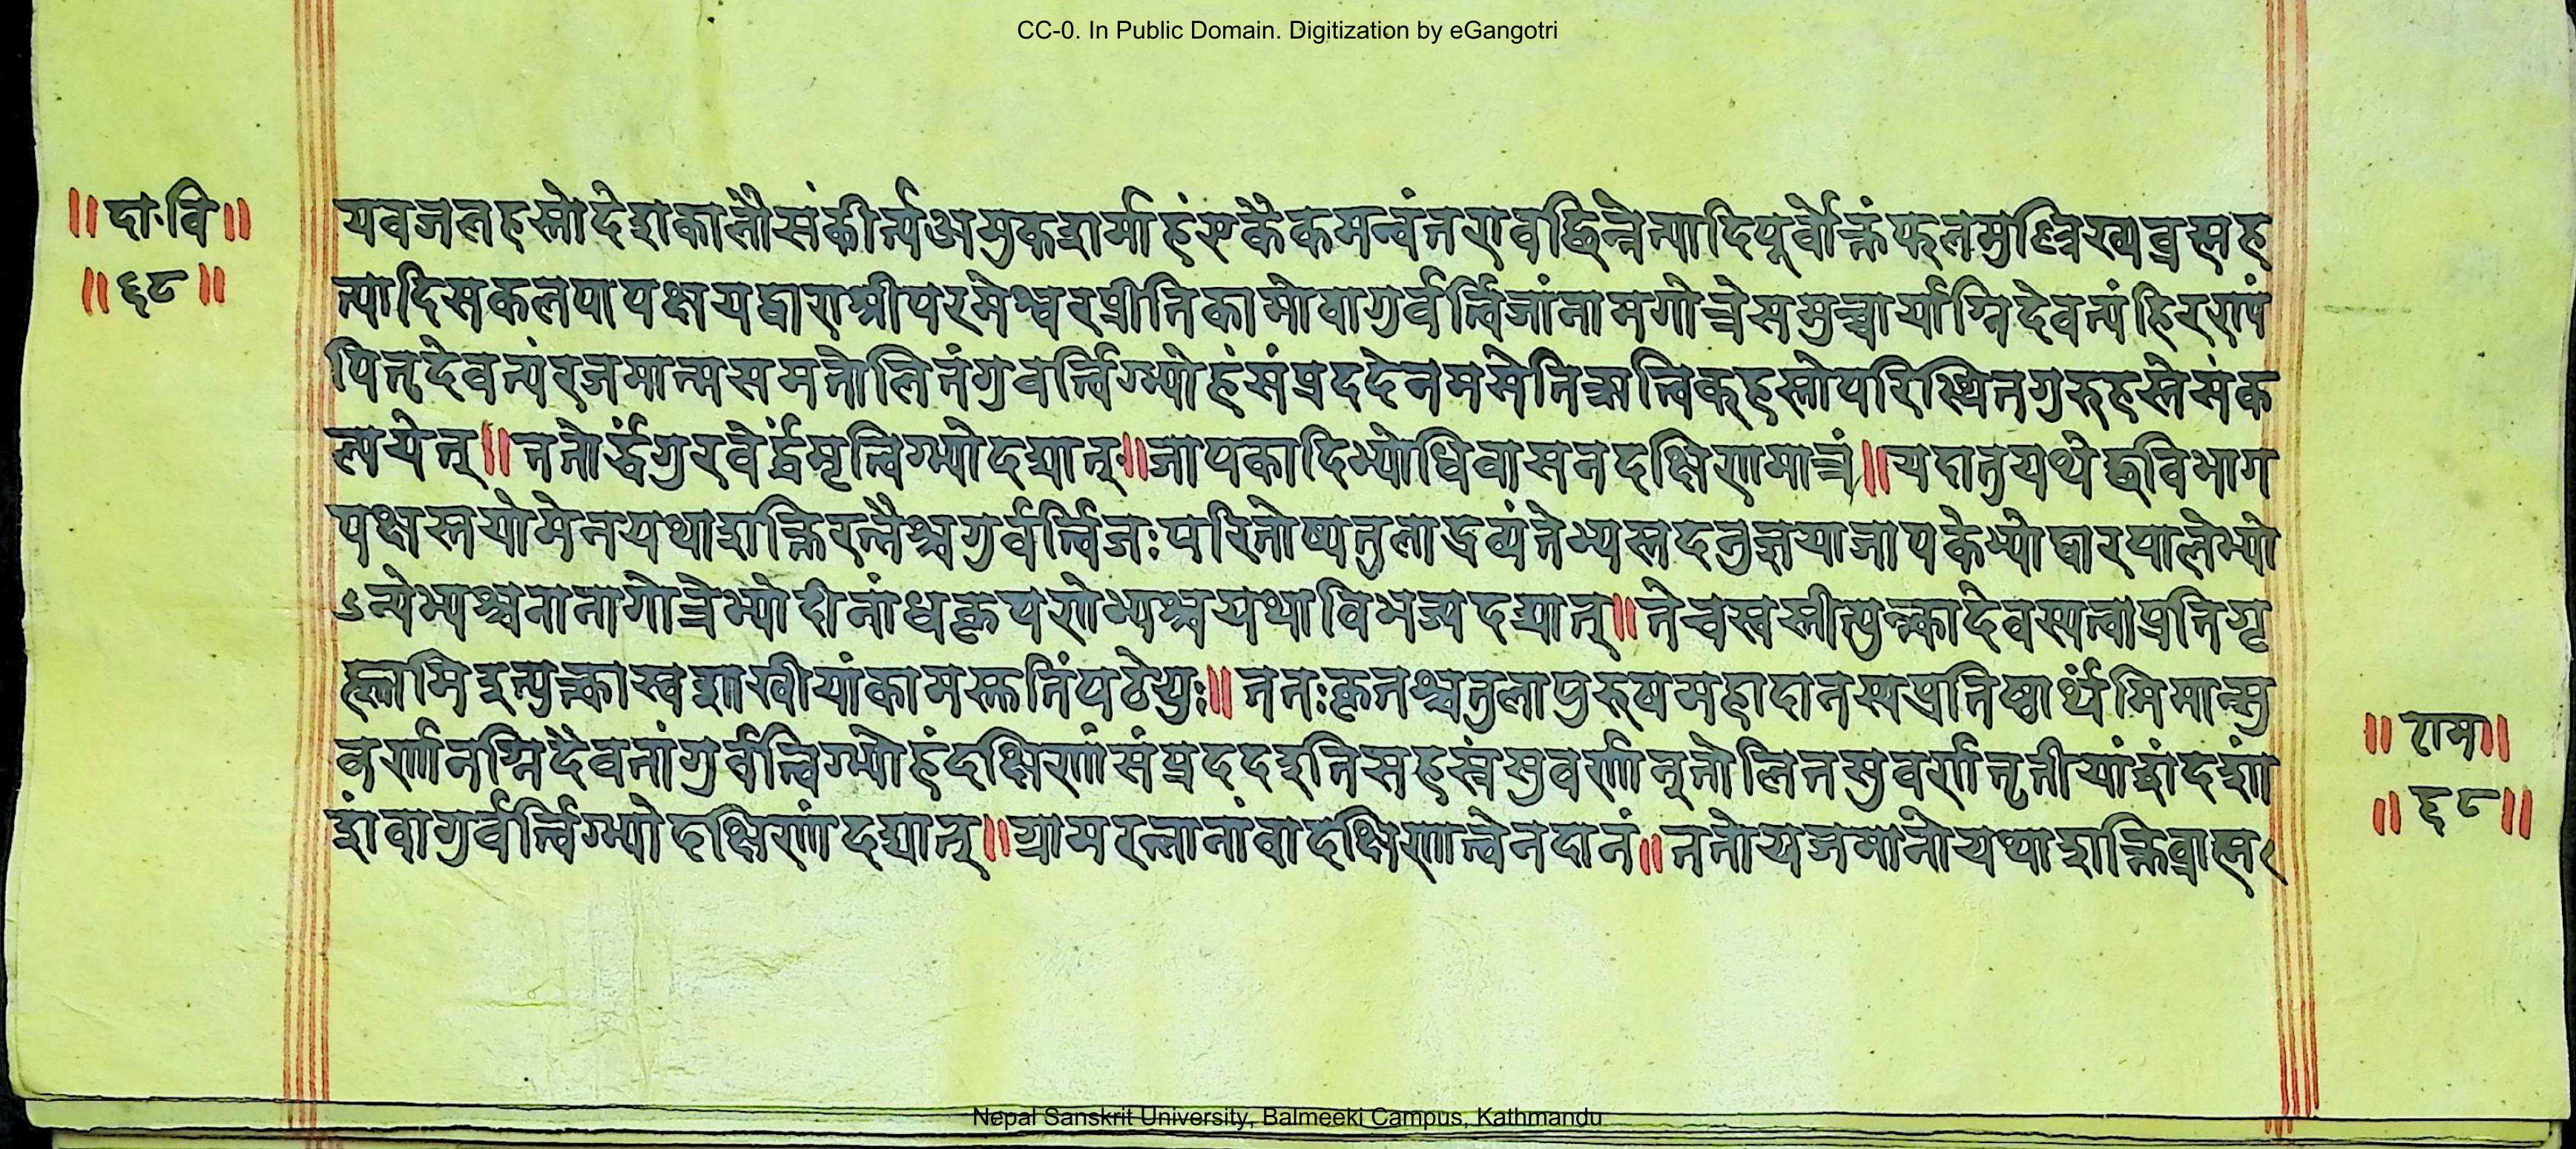 CC-0. In Public Domain. Digitization by eGangotri
॥दा॰वि॥
॥६८॥
यवजलहस्तोदेशकालौसंकीर्त्यअमुकशर्माहंएकैकमन्वंतरावछिन्नेत्यादिपूर्वोक्तंफलमुल्लिख्यब्रह्मह
त्यादिसकलपापक्षयद्वाराश्रीपरमेश्वरप्रीतिकामोवागुर्वर्त्विजांनामगोत्रेसमुच्चार्याग्निदेवत्यंहिरण्यं
पितृदेवत्यंरजमात्मसमतोलितंगुवर्त्विग्भ्योहंसंप्रददेनममेतिऋत्विक्हस्तोपरिस्थितगुरुहस्तेसंक
ल्पयेत्॥ततोर्द्धंगुरवेर्द्धंमृत्विग्भ्योदद्यात्॥जापकादिभ्योधिवासनदक्षिणामात्रं॥यदातुयथेछविभाग
पक्षस्तयोमेनयथाशक्तिरत्नैश्चगुर्वर्त्विजःपरितोष्यतुलाद्रव्यंतेभ्यस्तदनुज्ञयाजापकेभ्योद्वारपालेभ्यो
ऽन्येभ्यश्चनानागोत्रेभ्योदीनांधकृपणेभ्यश्चयथाविभज्यदद्यात्॥तेचस्वस्तीत्युक्त्कादेवस्यत्वाप्रतिगृ
ह्णामिइत्युक्त्कास्वशाखीयांकामस्तुतिंपठेयुः॥ततःकृतश्चतुलापुरुषमहादानस्यप्रतिष्ठार्थमिमान्सु
वर्णानग्निदैवतांगुर्वत्विग्भ्योहंदक्षिणांसंप्रददइतिसहस्रंसुवर्णानूतोलितसुवर्णातृतीयांशंदशां
शंवागुर्वर्त्विग्भ्योदक्षिणांदद्यात्॥ग्रामरत्नानांवादक्षिणात्वेनदानं॥ततोयजमानोयथाशक्तिब्राह्म
॥राम॥
॥६८॥
Nepal Sanskrit University, Balmeeki Campus, Kathmandu